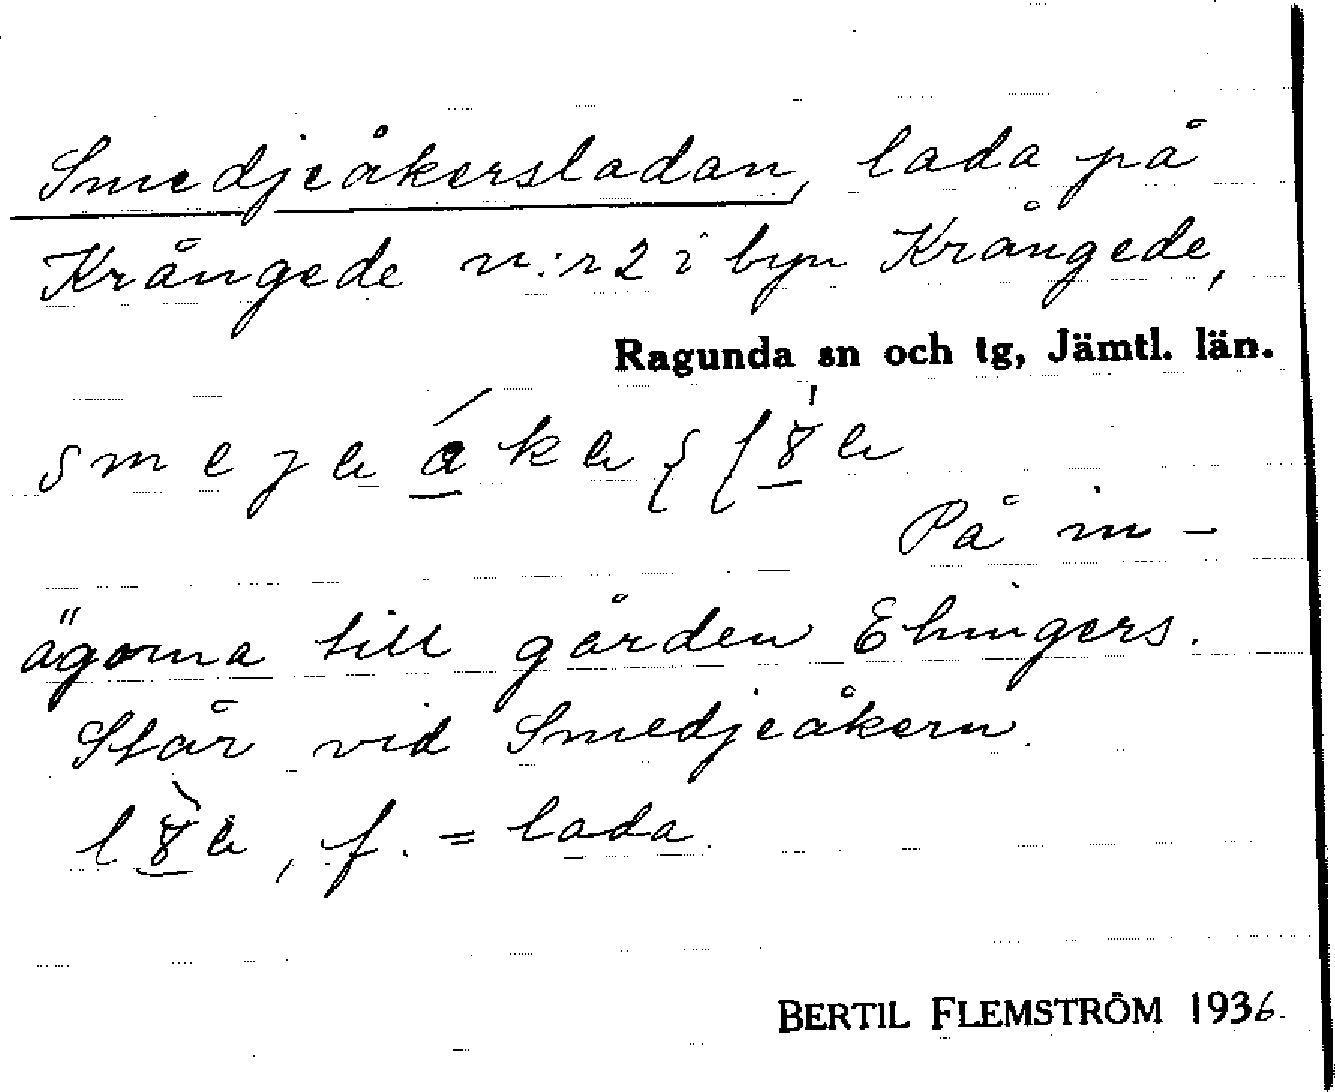 Smedjeåkersladan, lada på
Krångede n:r 2 i byn Krångede,
Ragunda sn och tg, Jämtl. län.
På in-
ägorna till gården Ehingers.
Står vid Smedjeåkern.
f. = lada.
BERTIL FLEMSTRÖM 1936.